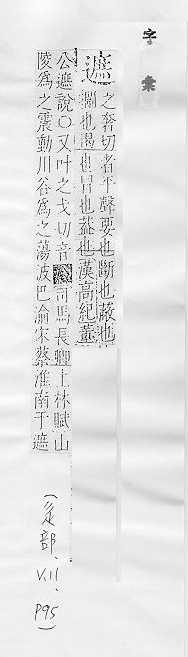 字彙
遮
之奢切者平聲要也斷也蔽也
攔也遏也冒也葢也漢高紀董
公遮說○又叶之戈切音 司馬長卿上林賦山
陵爲之震動川谷爲之蕩波巴渝宋蔡淮南干遮
(辵部、V.11、P95)